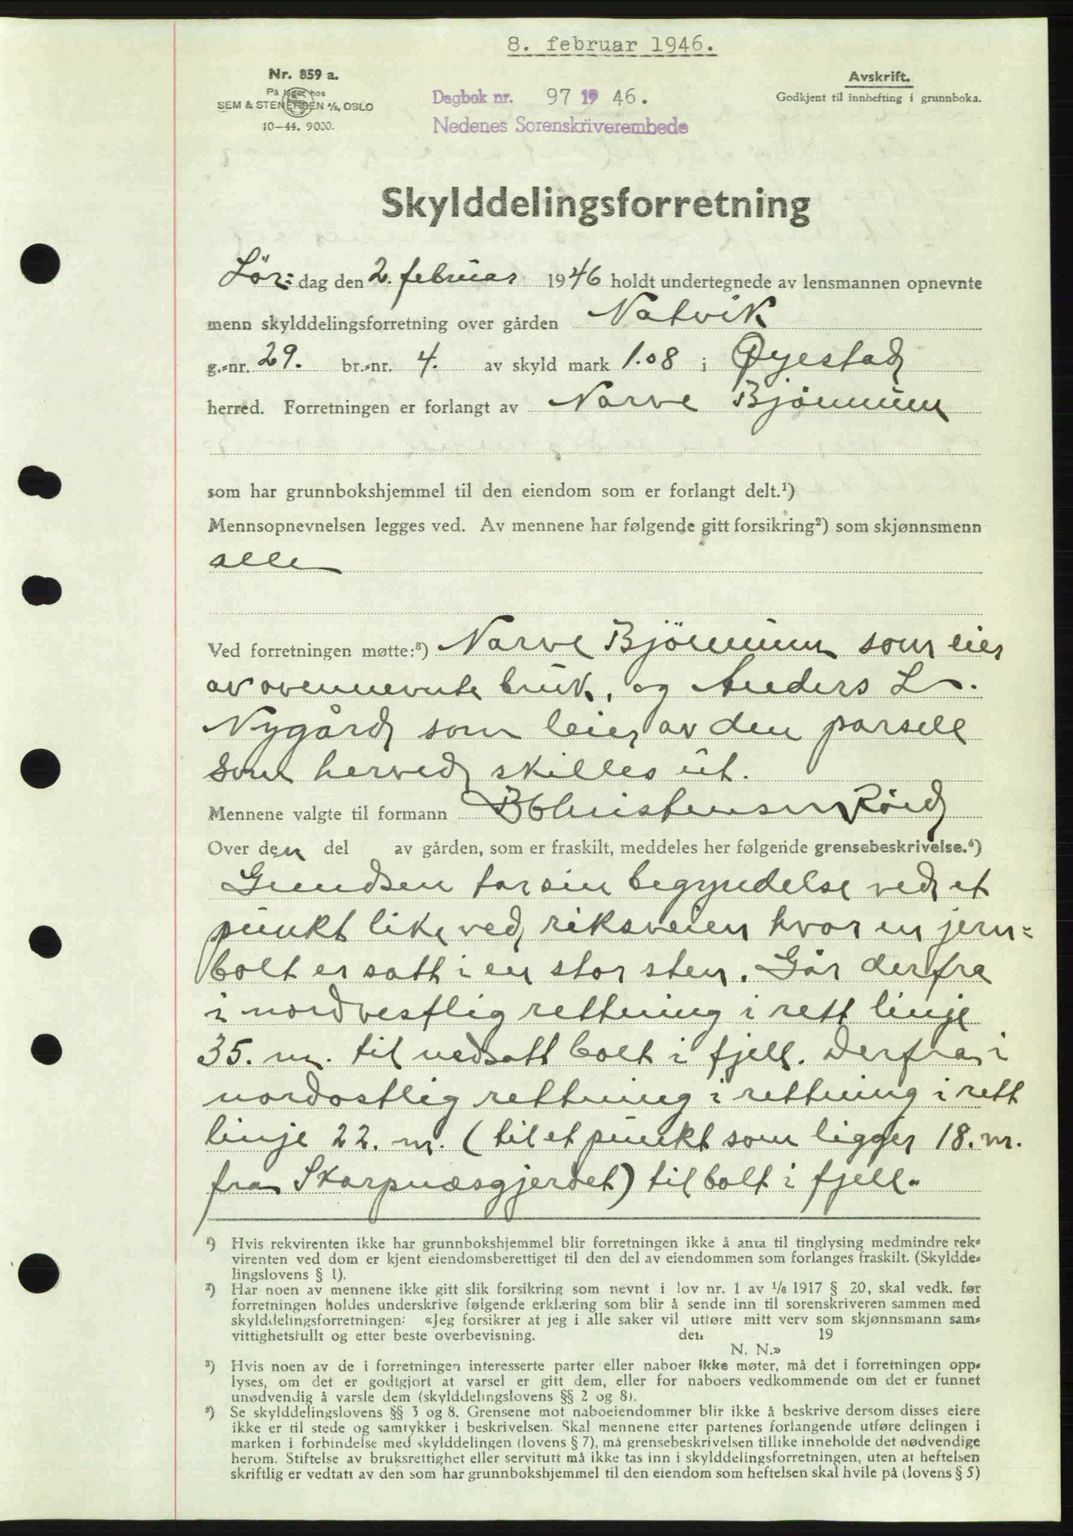 8. februar 1946.
Nr. 859 a.
På lager hos
SEM & STENERSEN A/S, OSLO
10-44. 9000.
Dagbok nr. 97 19 46.
Nedenes Sorenskriverembede
Avskrift.
Godkjent til innhefting i grunnboka.
Skylddelingsforretning
Lör: dag den 2. februar 1946 holdt undertegnede av lensmannen opnevnte
menn skylddelingsforretning over gården Natvik
g.-nr. 29. br.-nr. 4. av skyld mark 1.08 i Øyestad
herred. Forretningen er forlangt av Narve Bjönnum
som har grunnbokshjemmel til den eiendom som er forlangt delt.¹)
Mennsopnevnelsen legges ved. Av mennene har følgende gitt forsikring²) som skjønnsmenn
alle
Ved forretningen møtte:³) Narve Bjönnum som eier
av ovennevnte bruk, og Anders L.
Nygård som leier av den parsell
som herved skilles ut.
Mennene valgte til formann B Christensen Röed
Over den del av gården, som er fraskilt, meddeles her følgende grensebeskrivelse.⁴)
Grendsen tar sin begyndelse ved et
punkt like ved riksveien hvor en jern=
bolt er satt i en stor sten. Går derfra
i nordvestlig rettning i rett linje
35. m. til nedsatt bolt i fjell. Derfra i
nordostlig rettning i rettning i rett
linje 22. m. (til et punkt som ligger 18. m.
fra Skarpnæsgjerdet) til bolt i fjell.
¹) Hvis rekvirenten ikke har grunnbokshjemmel blir forretningen ikke å anta til tinglysing medmindre rek-
virenten ved dom er kjent eiendomsberettiget til den del av eiendommen som forlanges fraskilt. (Skyldde-
lingslovens § 1).
²) Har noen av mennene ikke gitt slik forsikring som nevnt i lov nr. 1 av 1/6 1917 § 20, skal vedk. før
forretningen holdes underskrive følgende erklæring som blir å sende inn til sorenskriveren sammen med
skylddelingsforretningen: «Jeg forsikrer at jeg i alle saker vil utføre mitt verv som skjønnsmann sam-
vittighetsfullt og etter beste overbevisning. den 19
N. N.»
³) Hvis noen av de i forretningen interesserte parter eller naboer ikke møter, må det i forretningen opp-
lyses, om det er godtgjort at varsel er gitt dem, eller for naboers vedkommende om det er funnet
unødvendig å varsle dem (skylddelingslovens §§ 2 og 8).
⁴) Se skylddelingslovens §§ 3 og 8. Grensene mot naboeiendommer blir ikke å beskrive dersom disses eiere
ikke er til stede og samtykker i beskrivelsen. Skal mennene etter partenes forlangende utføre delingen i
marken i forbindelse med skylddelingen (lovens § 7), må grensebeskrivelsen tillike inneholde det nødvendige
herom. Stiftelse av bruksrettighet eller servitutt må ikke tas inn i skylddelingsforretningen, uten at heftelsen
skriftlig er vedtatt av den som har grunnbokshjemmel til den eiendom som heftelsen skal hvile på (lovens § 5)